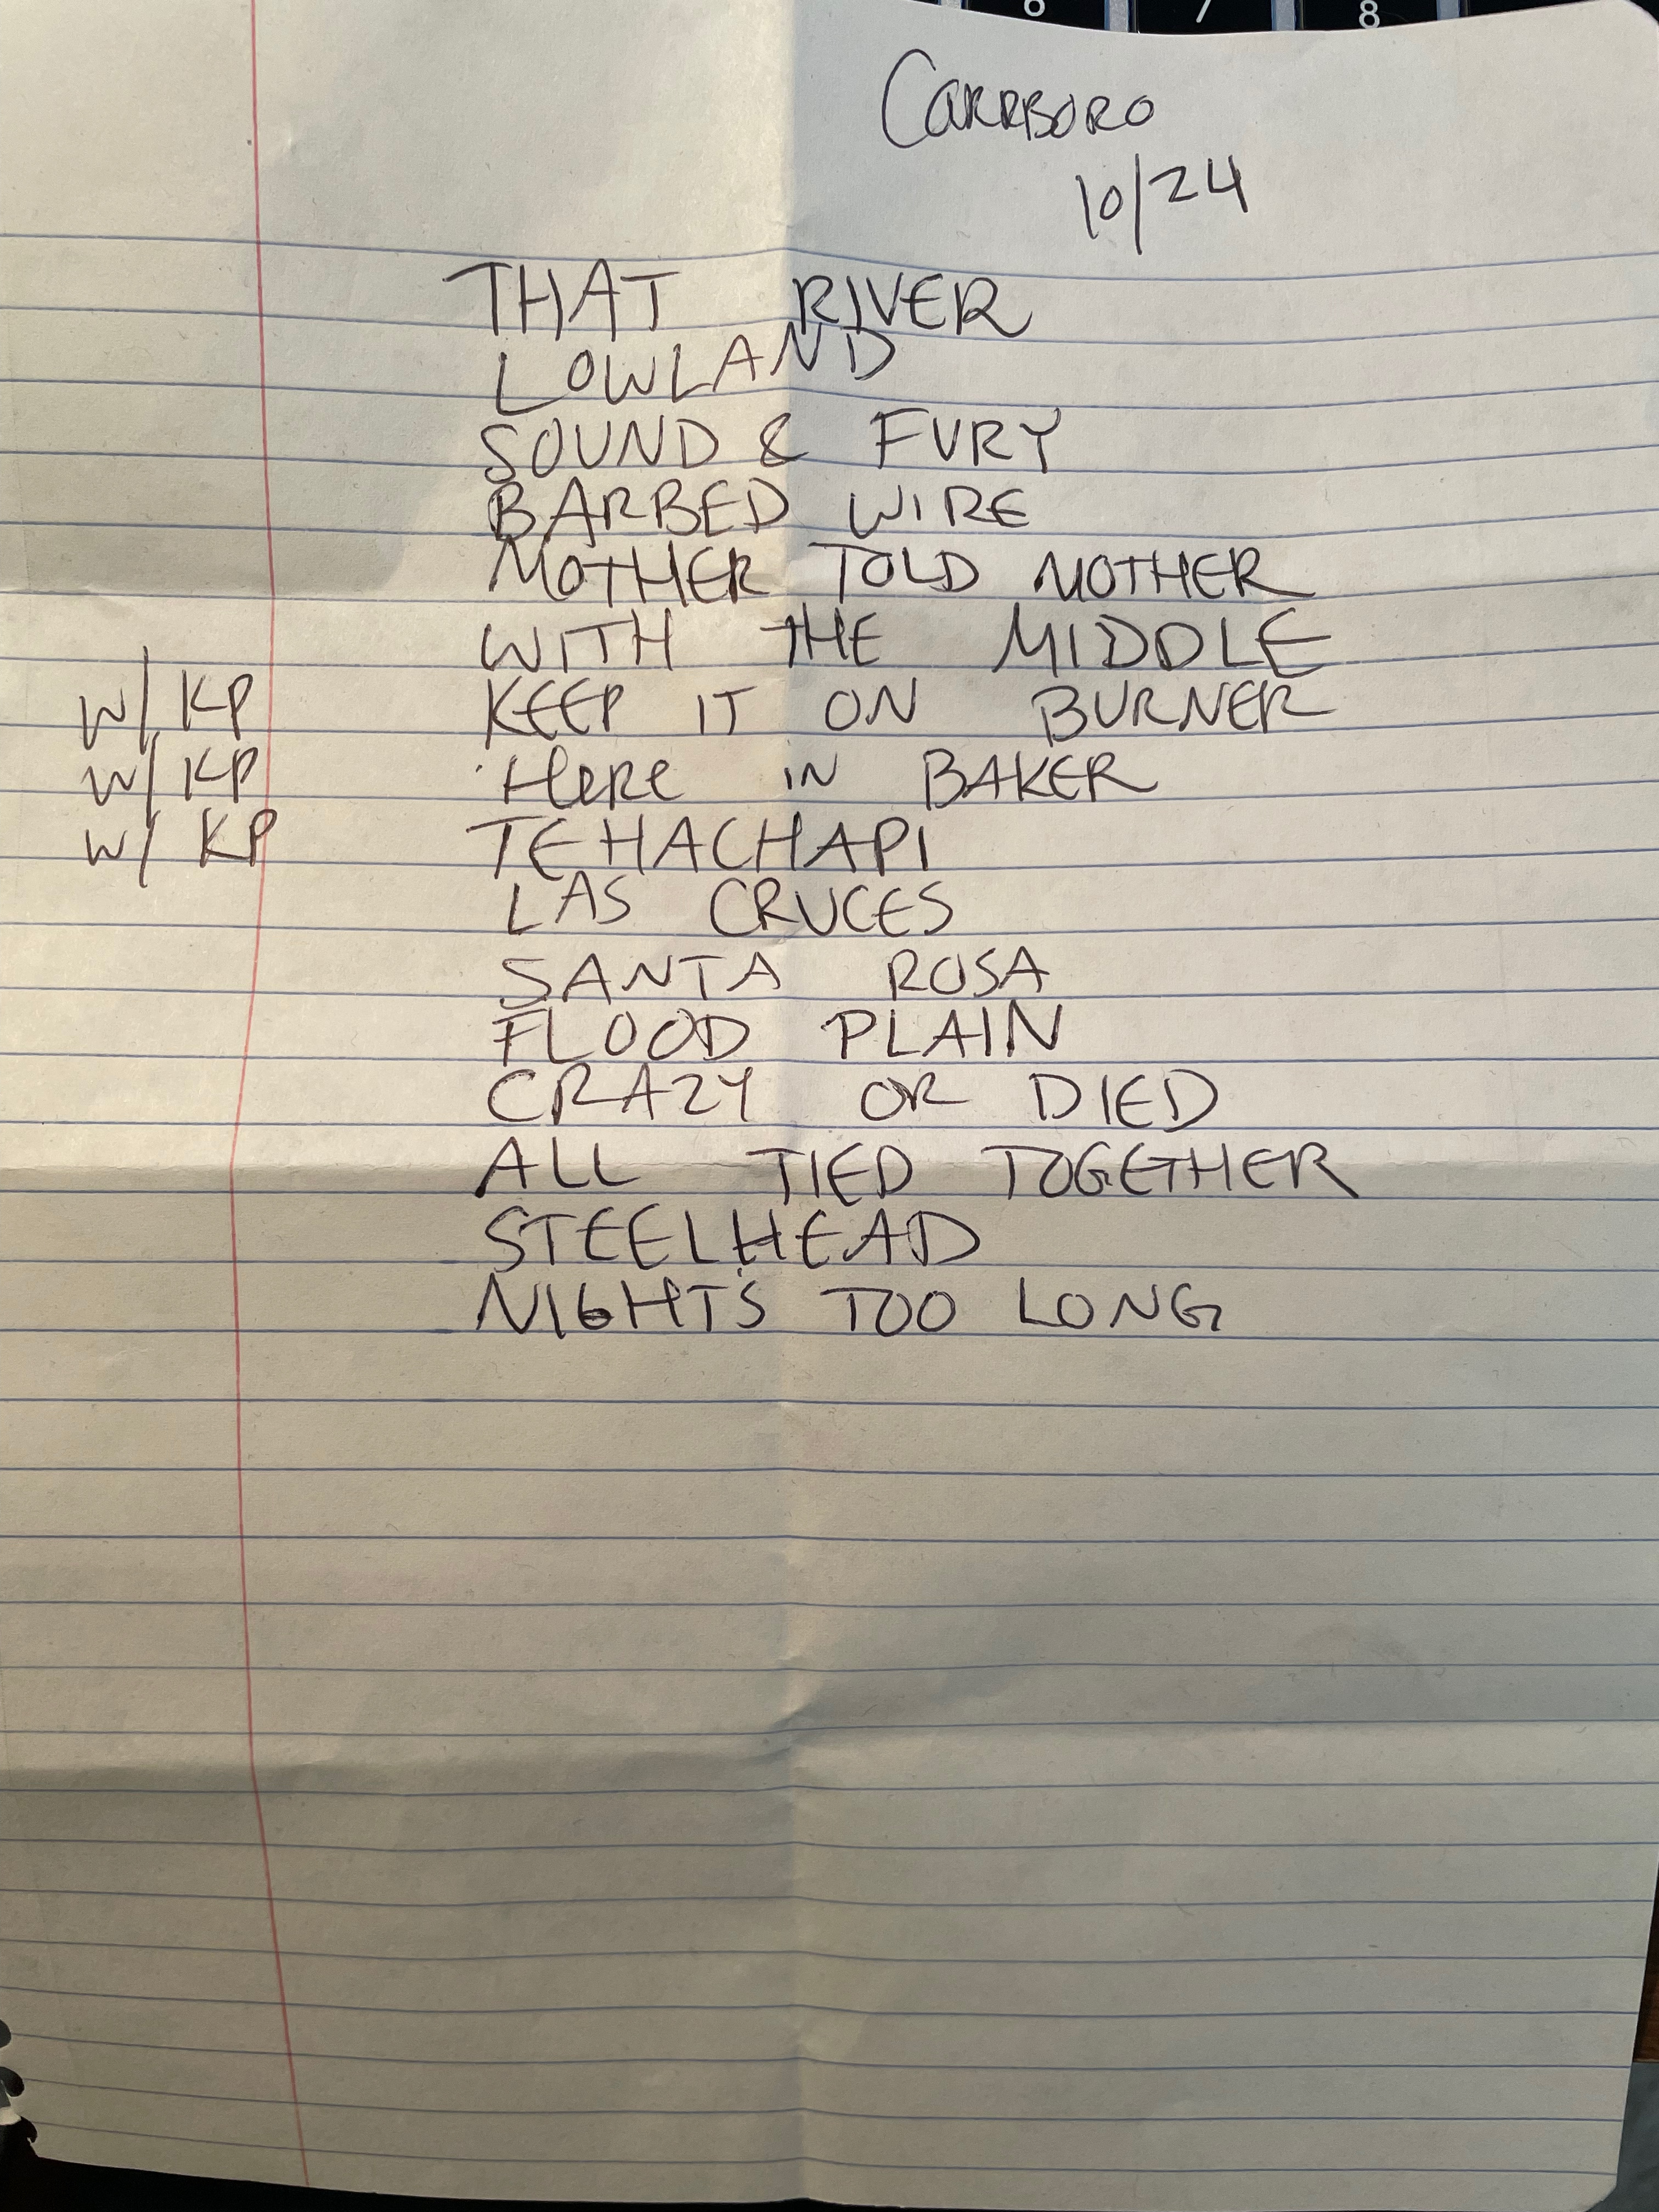 6 7 8
Carrboro
10/24
THAT RIVER
LOWLAND
SOUND & FURY
BARBED WIRE
MOTHER TOLD MOTHER
WITH THE MIDDLE
W/ KP KEEP IT ON BURNER
W/ KP Here IN BAKER
W/ KP TEHACHAPI
LAS CRUCES
SANTA ROSA
FLOOD PLAIN
CRAZY OR DIED
ALL TIED TOGETHER
STEELHEAD
NIGHT'S TOO LONG